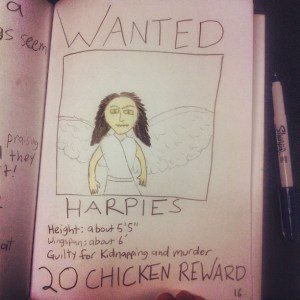 a
as seem
praising
they
t!
at
WANTED
HARPIES
Height: about 5'5"
Wingspan: about 6'
Guilty for Kidnapping and murder
20 CHICKEN REWARD
16
Sharpie